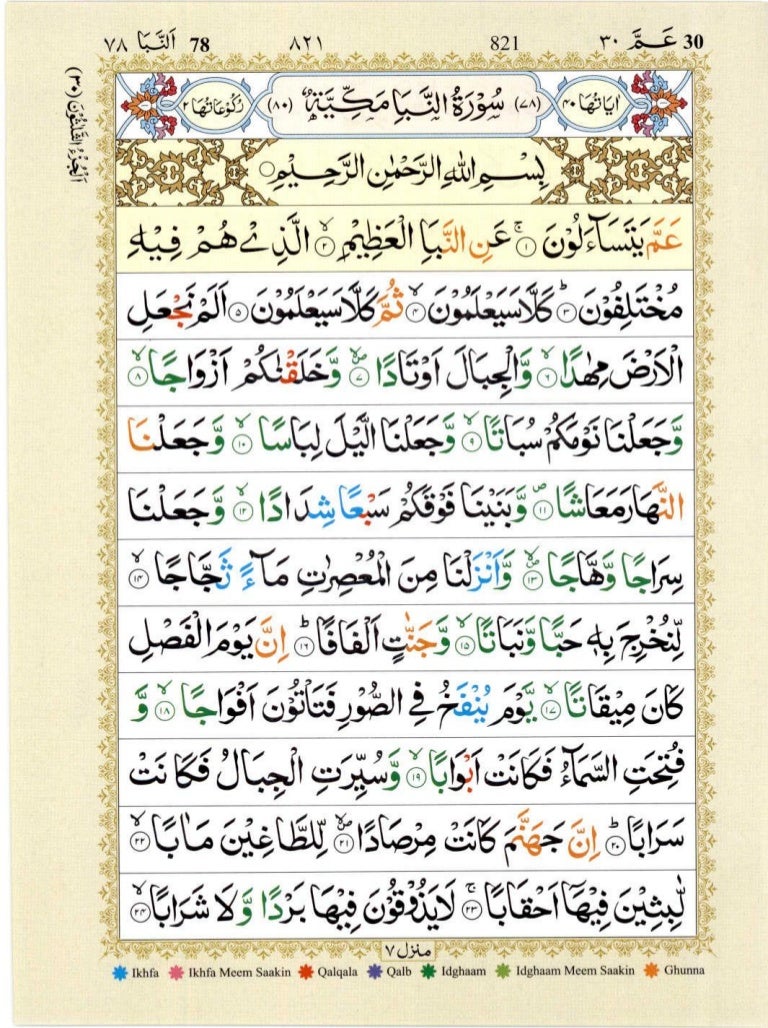 30 عَـمَّ ٣٠ 821 ٨٢١ 78 اَلنَّبَا ٧٨
اَلْجُزْءُ الثَّلٰثُوْنَ (٣٠)
اٰيَاتُهَا ٤٠ (٧٨) سُوْرَةُ النَّبَاِ مَكِّيَّةٌ (٨٠) رُكُوْعَاتُهَا ٢
بِسْمِ اللّٰهِ الرَّحْمٰنِ الرَّحِيْمِ
عَمَّ يَتَسَآءَلُوْنَ ۚ‏﴿۱﴾ عَنِ النَّبَاِ الْعَظِيْمِۙ‏﴿۲﴾ الَّذِىْ هُمْ فِيْهِ
مُخْتَلِفُوْنَؕ‏﴿۳﴾ كَلَّا سَيَعْلَمُوْنَۙ‏﴿۴﴾ ثُمَّ كَلَّا سَيَعْلَمُوْنَ‏﴿۵﴾ اَلَمْ نَجْعَلِ
الْاَرْضَ مِهٰدًاۙ‏﴿۶﴾ وَّالْجِبَالَ اَوْتَادًاۙ‏﴿۷﴾ وَّخَلَقْنٰكُمْ اَزْوَاجًاۙ‏﴿۸﴾
وَّجَعَلْنَا نَوْمَكُمْ سُبَاتًاۙ‏﴿۹﴾ وَّجَعَلْنَا الَّيْلَ لِبَاسًاۙ‏﴿۱۰﴾ وَّجَعَلْنَا
النَّهَارَ مَعَاشًا‏﴿۱۱﴾ وَّبَنَيْنَا فَوْقَكُمْ سَبْعًا شِدَادًاۙ‏﴿۱۲﴾ وَّجَعَلْنَا
سِرَاجًا وَّهَّاجًا‏﴿۱۳﴾ وَّاَنْزَلْنَا مِنَ الْمُعْصِرٰتِ مَآءً ثَجَّاجًاۙ‏﴿۱۴﴾
لِّنُخْرِجَ بِهٖ حَبًّا وَّنَبَاتًاۙ‏﴿۱۵﴾ وَّجَنّٰتٍ اَلْفَافًاؕ‏﴿۱۶﴾ اِنَّ يَوْمَ الْفَصْلِ
كَانَ مِيْقَاتًاۙ‏﴿۱۷﴾ يَّوْمَ يُنْفَخُ فِى الصُّوْرِ فَتَاْتُوْنَ اَفْوَاجًاۙ‏﴿۱۸﴾ وَّ
فُتِحَتِ السَّمَآءُ فَكَانَتْ اَبْوَابًاۙ‏﴿۱۹﴾ وَّسُيِّرَتِ الْجِبَالُ فَكَانَتْ
سَرَابًاؕ‏﴿۲۰﴾ اِنَّ جَهَنَّمَ كَانَتْ مِرْصَادًا‏﴿۲۱﴾ لِّلطَّاغِيْنَ مَاٰبًاۙ‏﴿۲۲﴾
لّٰبِثِيْنَ فِيْهَاۤ اَحْقَابًاۚ‏﴿۲۳﴾ لَا يَذُوْقُوْنَ فِيْهَا بَرْدًا وَّلَا شَرَابًاۙ‏﴿۲۴﴾
منزل ٧
Ikhfa Ikhfa Meem Saakin Qalqala Qalb Idghaam Idghaam Meem Saakin Ghunna